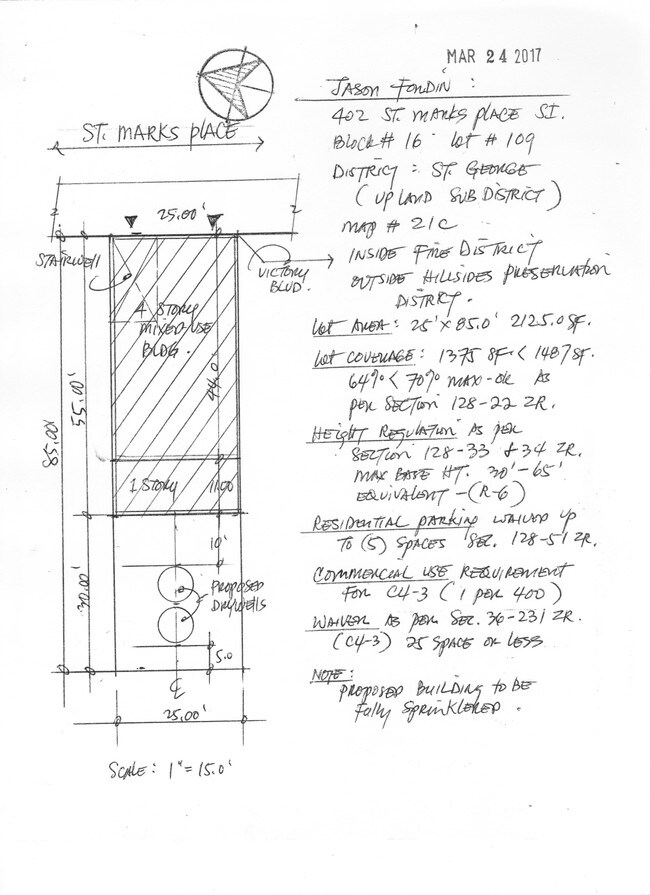 MAR 24 2017
JASON FONDIN :
402 ST. MARKS PLACE SI.
BLOCK # 16 LOT # 109
DISTRICT : ST. GEORGE
(UPLAND SUB DISTRICT)
MAP # 21C
INSIDE FIRE DISTRICT
OUTSIDE HILLSIDES PRESERVATION
DISTRICT.
LOT AREA: 25' X 85.0' 2125.0 SF.
LOT COVERAGE: 1375 SF. < 1487 SF.
64% < 70% MAX-OK AS
PER SECTION 128-22 ZR.
HEIGHT REGULATION AS PER
SECTION 128-33 & 34 ZR.
MAX BASE HT. 30'-65'
EQUIVALENT - (R-6)
RESIDENTIAL PARKING WAIVED UP
TO (5) SPACES SEC. 128-51 ZR.
COMMERCIAL USE REQUIREMENT
FOR C4-3 (1 PER 400)
WAIVER AS PER SEC. 36-231 ZR.
(C4-3) 25 SPACE OR LESS
NOTE:
PROPOSED BUILDING TO BE
FULLY SPRINKLERED.
ST. MARKS PLACE
25.00'
STAIRWELL
VICTORY
BLVD.
4 STORY
MIXED USE
BLDG.
44.0'
55.00'
85.00'
1 STORY
11.00
10'
30.00'
PROPOSED
DRYWELLS
5.0
3
25.00'
SCALE: 1" = 15.0'